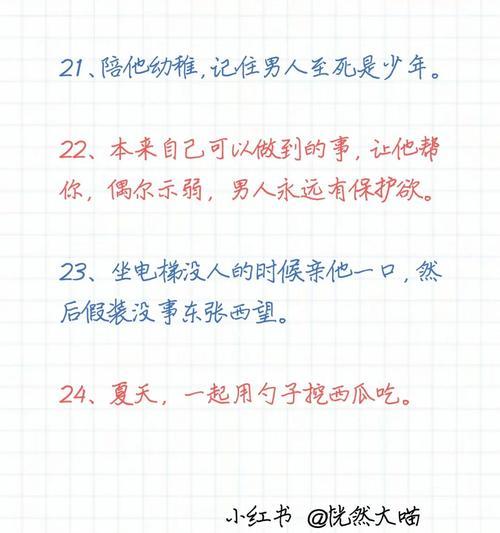 21、陪他幼稚,记住男人至死是少年。
22、本来自己可以做到的事,让他帮
你,偶尔示弱,男人永远有保护欲。
23、坐电梯没人的时候亲他一口,然
后假装没事东张西望。
24、夏天,一起用勺子挖西瓜吃。
小红书 @恍然大喵